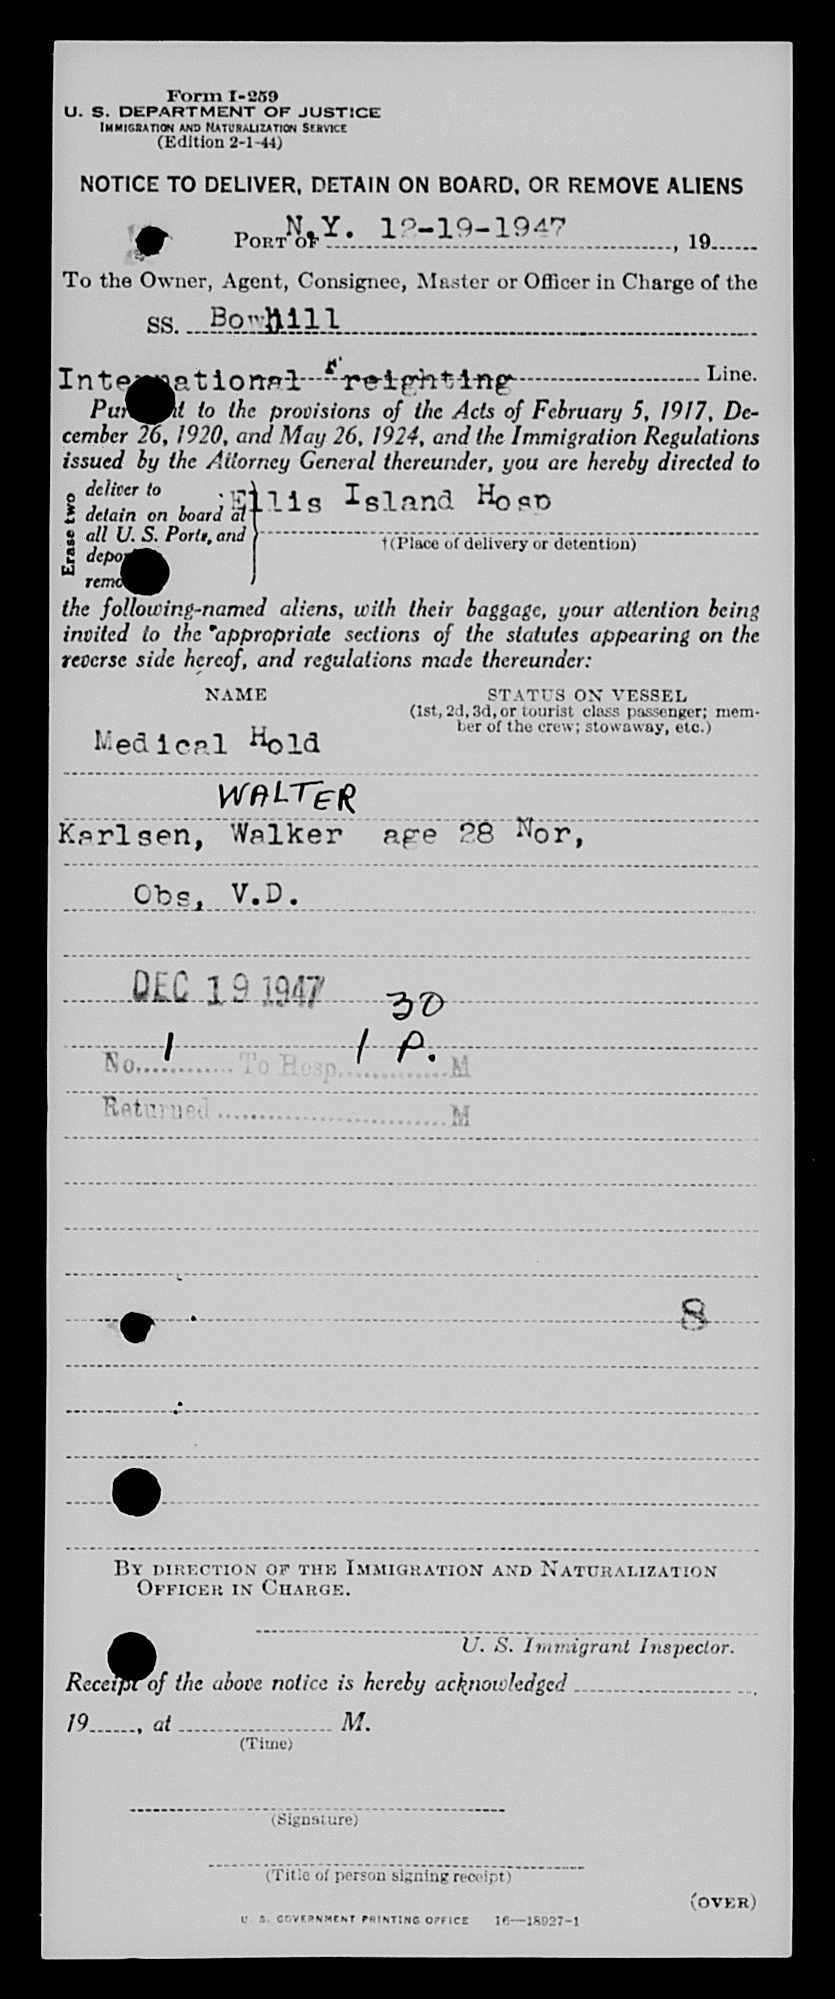 Form I-259
U. S. DEPARTMENT OF JUSTICE
IMMIGRATION AND NATURALIZATION SERVICE
(Edition 2-1-44)
NOTICE TO DELIVER, DETAIN ON BOARD, OR REMOVE ALIENS
PORT OF N.Y. 12-19-1947, 19
To the Owner, Agent, Consignee, Master or Officer in Charge of the
SS. Bowhill
International Freighting Line.
Pursuant to the provisions of the Acts of February 5, 1917, De-
cember 26, 1920, and May 26, 1924, and the Immigration Regulations
issued by the Attorney General thereunder, you are hereby directed to
Erase two
deliver to
detain on board at
all U. S. Ports, and
deport
remove
Ellis Island Hosp
†(Place of delivery or detention)
the following-named aliens, with their baggage, your attention being
invited to the appropriate sections of the statutes appearing on the
reverse side hereof, and regulations made thereunder:
NAME STATUS ON VESSEL
(1st, 2d, 3d, or tourist class passenger; mem-
ber of the crew; stowaway, etc.)
Medical Hold
WALTER
Karlsen, Walker age 28 Nor,
Obs, V.D.
DEC 19 1947
30
No. 1 To Hosp. 1 P. M
Returned M
8
BY DIRECTION OF THE IMMIGRATION AND NATURALIZATION
OFFICER IN CHARGE.
U. S. Immigrant Inspector.
Receipt of the above notice is hereby acknowledged
19, at M.
(Time)
(Signature)
(Title of person signing receipt)
(OVER)
U. S. GOVERNMENT PRINTING OFFICE 16—18927-1